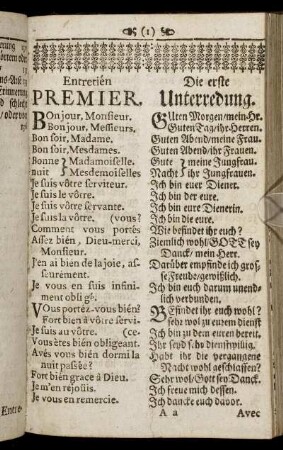 (1)
Entretiẽn
PREMIER.
BOn jour, Monsieur.
Bon jour, Messieurs.
Bon soir, Madame.
Bon soir, Mesdames.
Bonne } Madamoiselle.
nuit } Mesdemoiselles
Je suis vôtre serviteur.
Je suis le vôtre.
Je suis vôtre servante.
Je suis la vôtre. (vous?
Comment vous portés
Assez bièn, Dieu-merci,
Monsieur.
J'en ai bièn de la joie, as-
seurément.
Je vous en suis infini-
ment obligé.
VOus portez-vous bièn?
Fort bièn à vôtre servi-
Je suis au vôtre. (ce.
Vous êtes bièn obligeant.
Avés vous bièn dormi la
nuit passée?
Fort bièn grace à Dieu.
Je m'en rejoüis.
Je vous en remercie.
Die erste
Unterredung.
GUten Morgen/mein Hr.
Guten Tag/ihr Herren.
Guten Abend/meine Frau.
Guten Abend/ihr Frauen.
Gute } meine Jungfrau.
Nacht } ihr Jungfrauen.
Ich bin euer Diener.
Ich bin der eure.
Ich bin eure Dienerin.
Ich bin die eure.
Wie befindet ihr euch?
Ziemlich wohl/GOTT sey
Danck/mein Herr.
Darüber empfinde ich gros-
se Freude/gewißlich.
Ich bin euch darum unend-
lich verbunden.
BEfindet ihr euch wohl?
sehr wol zu eurem dienst
Ich bin zu dem euren bereit.
Ihr seyd sehr dienstwillig.
Habt ihr die vergangene
Nacht wohl geschlaffen?
Sehr wol/Gott sey Danck.
Ich freue mich dessen.
Ich dancke euch davor.
A a
Avec